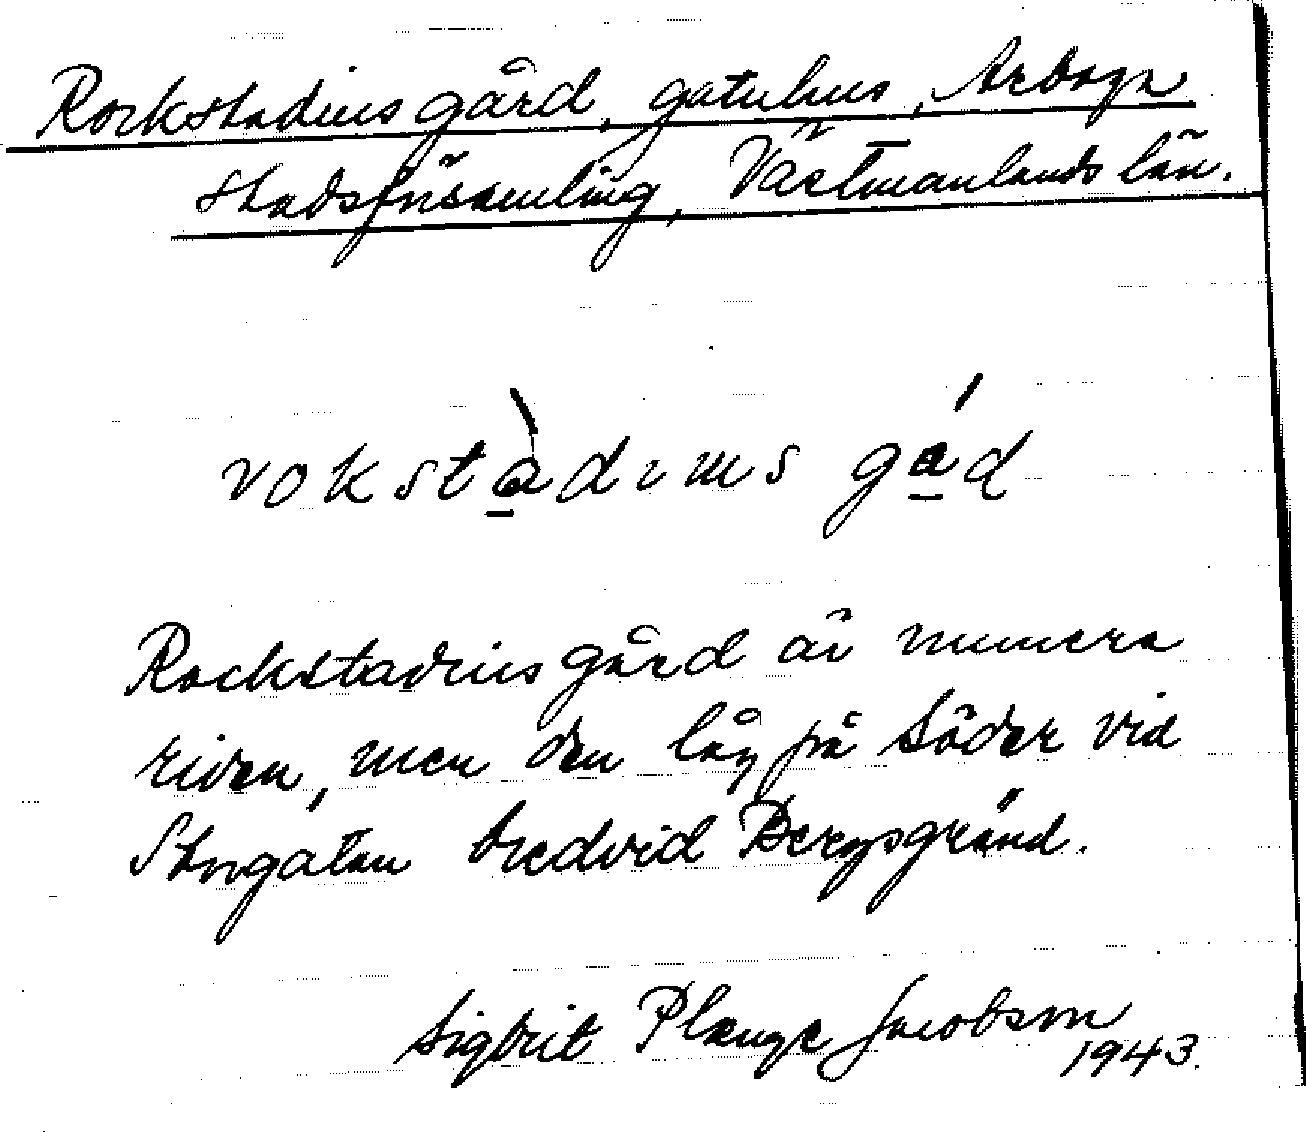 Rockstadius gård, gatuhus, Arboga
stadsförsamling, Västmanlands län.
rokstàdıus gád
Rockstadius gård är numera
riven, men den låg på Söder vid
Storgatan bredvid Bergsgränd.
Sigbrit Plænge Jacobson
1943.